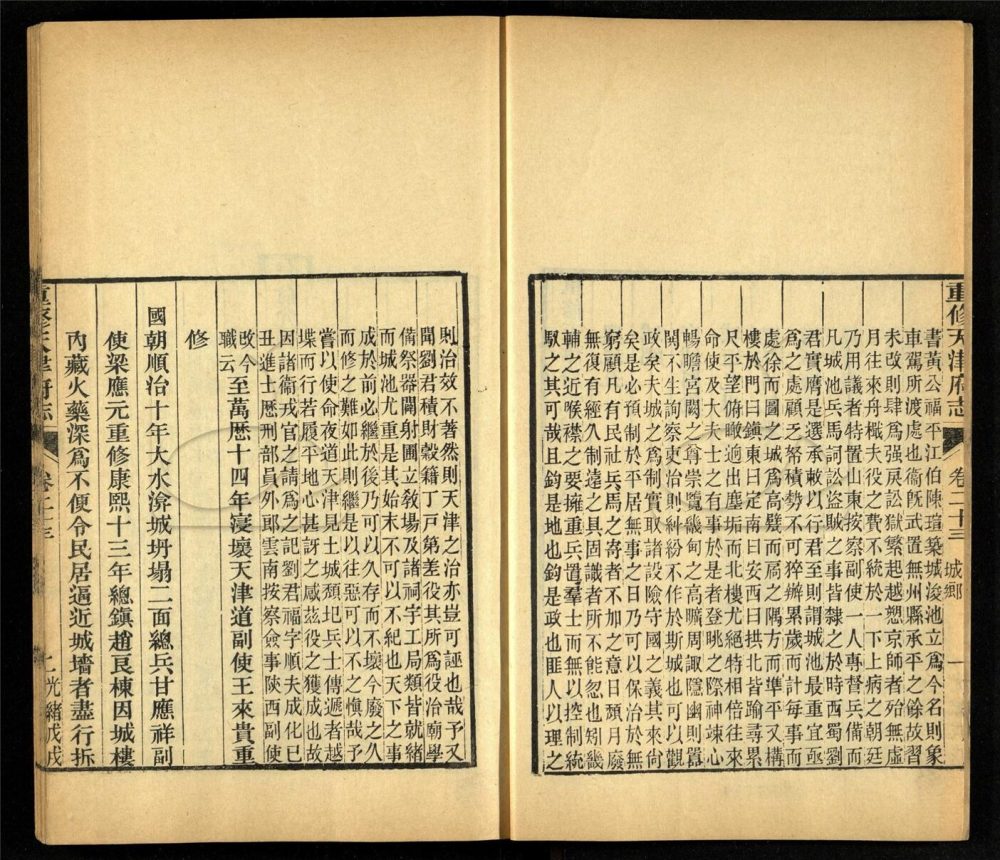 重修天津府志 卷二十三 城鄉 一
書黃公福平江伯陳瑄築城浚池立為今名則象
車駕所渡處也衞旣武置無州縣承平之餘故習
未改則肆為強戾訟獄繁起越愬京師者殆無虛
月往來舟檝夫役之費不統於一下上病之朝廷
乃用議者特置山東按察副使一人專督兵備而
凡城池兵馬詞訟盜賊之事皆隸之於時西蜀劉
君實膺是選承敕以行君至則謂城池最重宜亟
為之處顧乏帑積勢不可猝辦累歲而計每事而
處徐而圖之城為高甓而扃之隅方而準平又構
樓於門曰鎮東曰定南曰安西曰拱北皆踰尋累
尺平望俯瞰逈出塵垢而北樓尤絕特相倍往來
命使及大夫士之有事於是者登眺之際神竦心
暢瞻宮闕之尊崇覽畿甸之高曠周諏隱幽則囂
鬨不生詢察吏治則糾紛不作於斯城也可以觀
政矣夫城之為制實取諸設險守國之義其來尙
矣是必預制於平居無事之日乃可以保治於無
窮顧凡有民社兵馬之寄者不加之意日頹月廢
無復有經久制遠之具固識者所不能忍也矧畿
輔之近喉襟之要擁重兵置羣士而無以控制統
馭之其可哉且鈞是地也鈞是政也匪人以理之
則治效不著然則天津之治亦豈可誣也哉予又
聞劉君積財穀籍丁戸第差役其所為役治廟學
備祭器闢射圃立敎場及諸祠宇工局類皆就緒
而城池尤重是其始末不可以不紀也天下之事
成於前必繼於後乃可以久存而不壞今廢之人
而修之難如此則繼是以往惡可以不之愼哉予
嘗以使命夜道天津見土城頹圮兵士傳遞者越
堞而行若履平地心甚訝之咸茲役之獲成也故
因諸衞戎官之請為之記劉君福字順夫成化已
丑進士歷刑部員外郎雲南按察僉事陝西副使
改今職云 至萬厯十四年寖壞天津道副使王來貴重
修
國朝順治十年大水渰城坍塌二面總兵甘應祥副
使梁應元重修康熙十三年總鎮趙良棟因城樓
內藏火藥深為不便令民居逼近城墻者盡行拆
重修天津府志 卷二十三 二 光緒戊戌